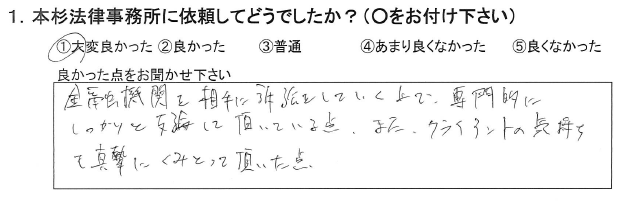 1. 本杉法律事務所に依頼してどうでしたか?(〇をお付け下さい)
①大変良かった ②良かった ③普通 ④あまり良くなかった ⑤良くなかった
良かった点をお聞かせ下さい
金融機関を相手に訴訟をしていく上で、専門的に
しっかりと して頂いている点、また、クライアントの気持ち
を真摯にくみとって頂いた点